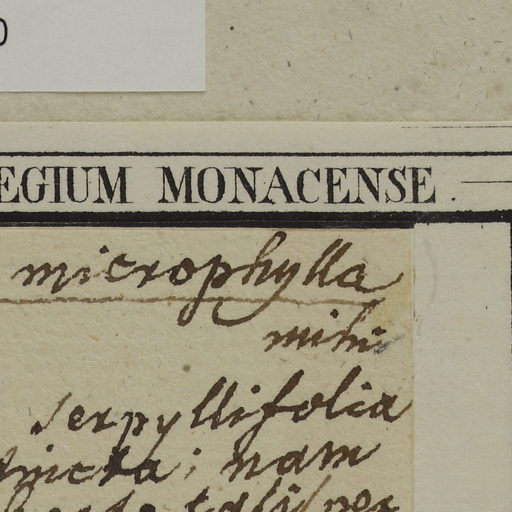 0
EGIUM MONACENSE.
microphylla
mihi
serpyllifolia
tincta; nam